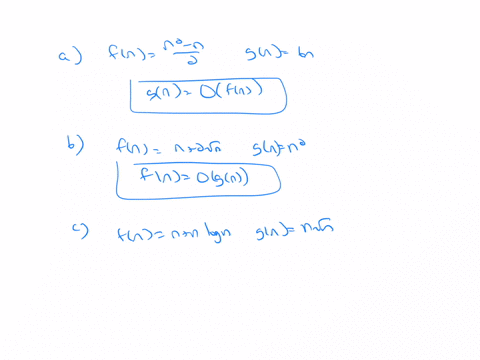 a) f(n) = n²-n/2 g(n) = 6n
g(n) = O(f(n))
b) f(n) = n+2√n g(n) = n²
f(n) = O(g(n))
c) f(n) = n+n log n g(n) = n√n